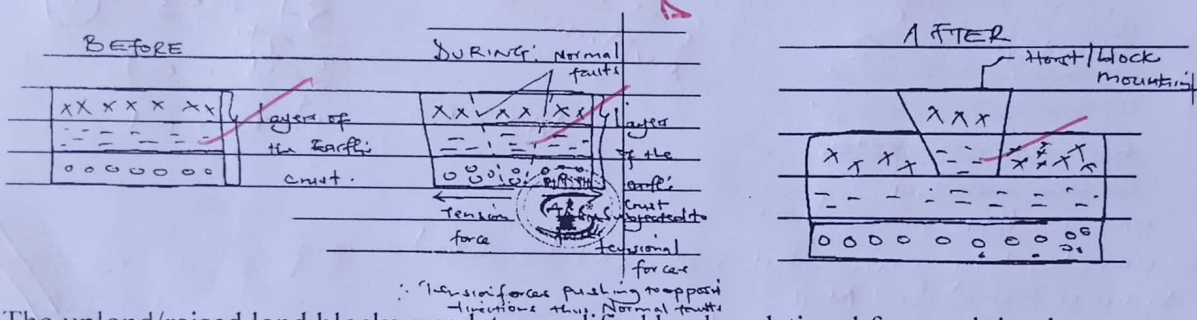 BEFORE
layers of
the Earth's
crust.
DURING: Normal
faults
layer
of the
earth's
crust
subjected to
tensional
forces
Tension
force
∴ Tension forces pushing to opposit
directions thus Normal faults
AFTER
Horst/block
mountain
The upland/raised land blocks